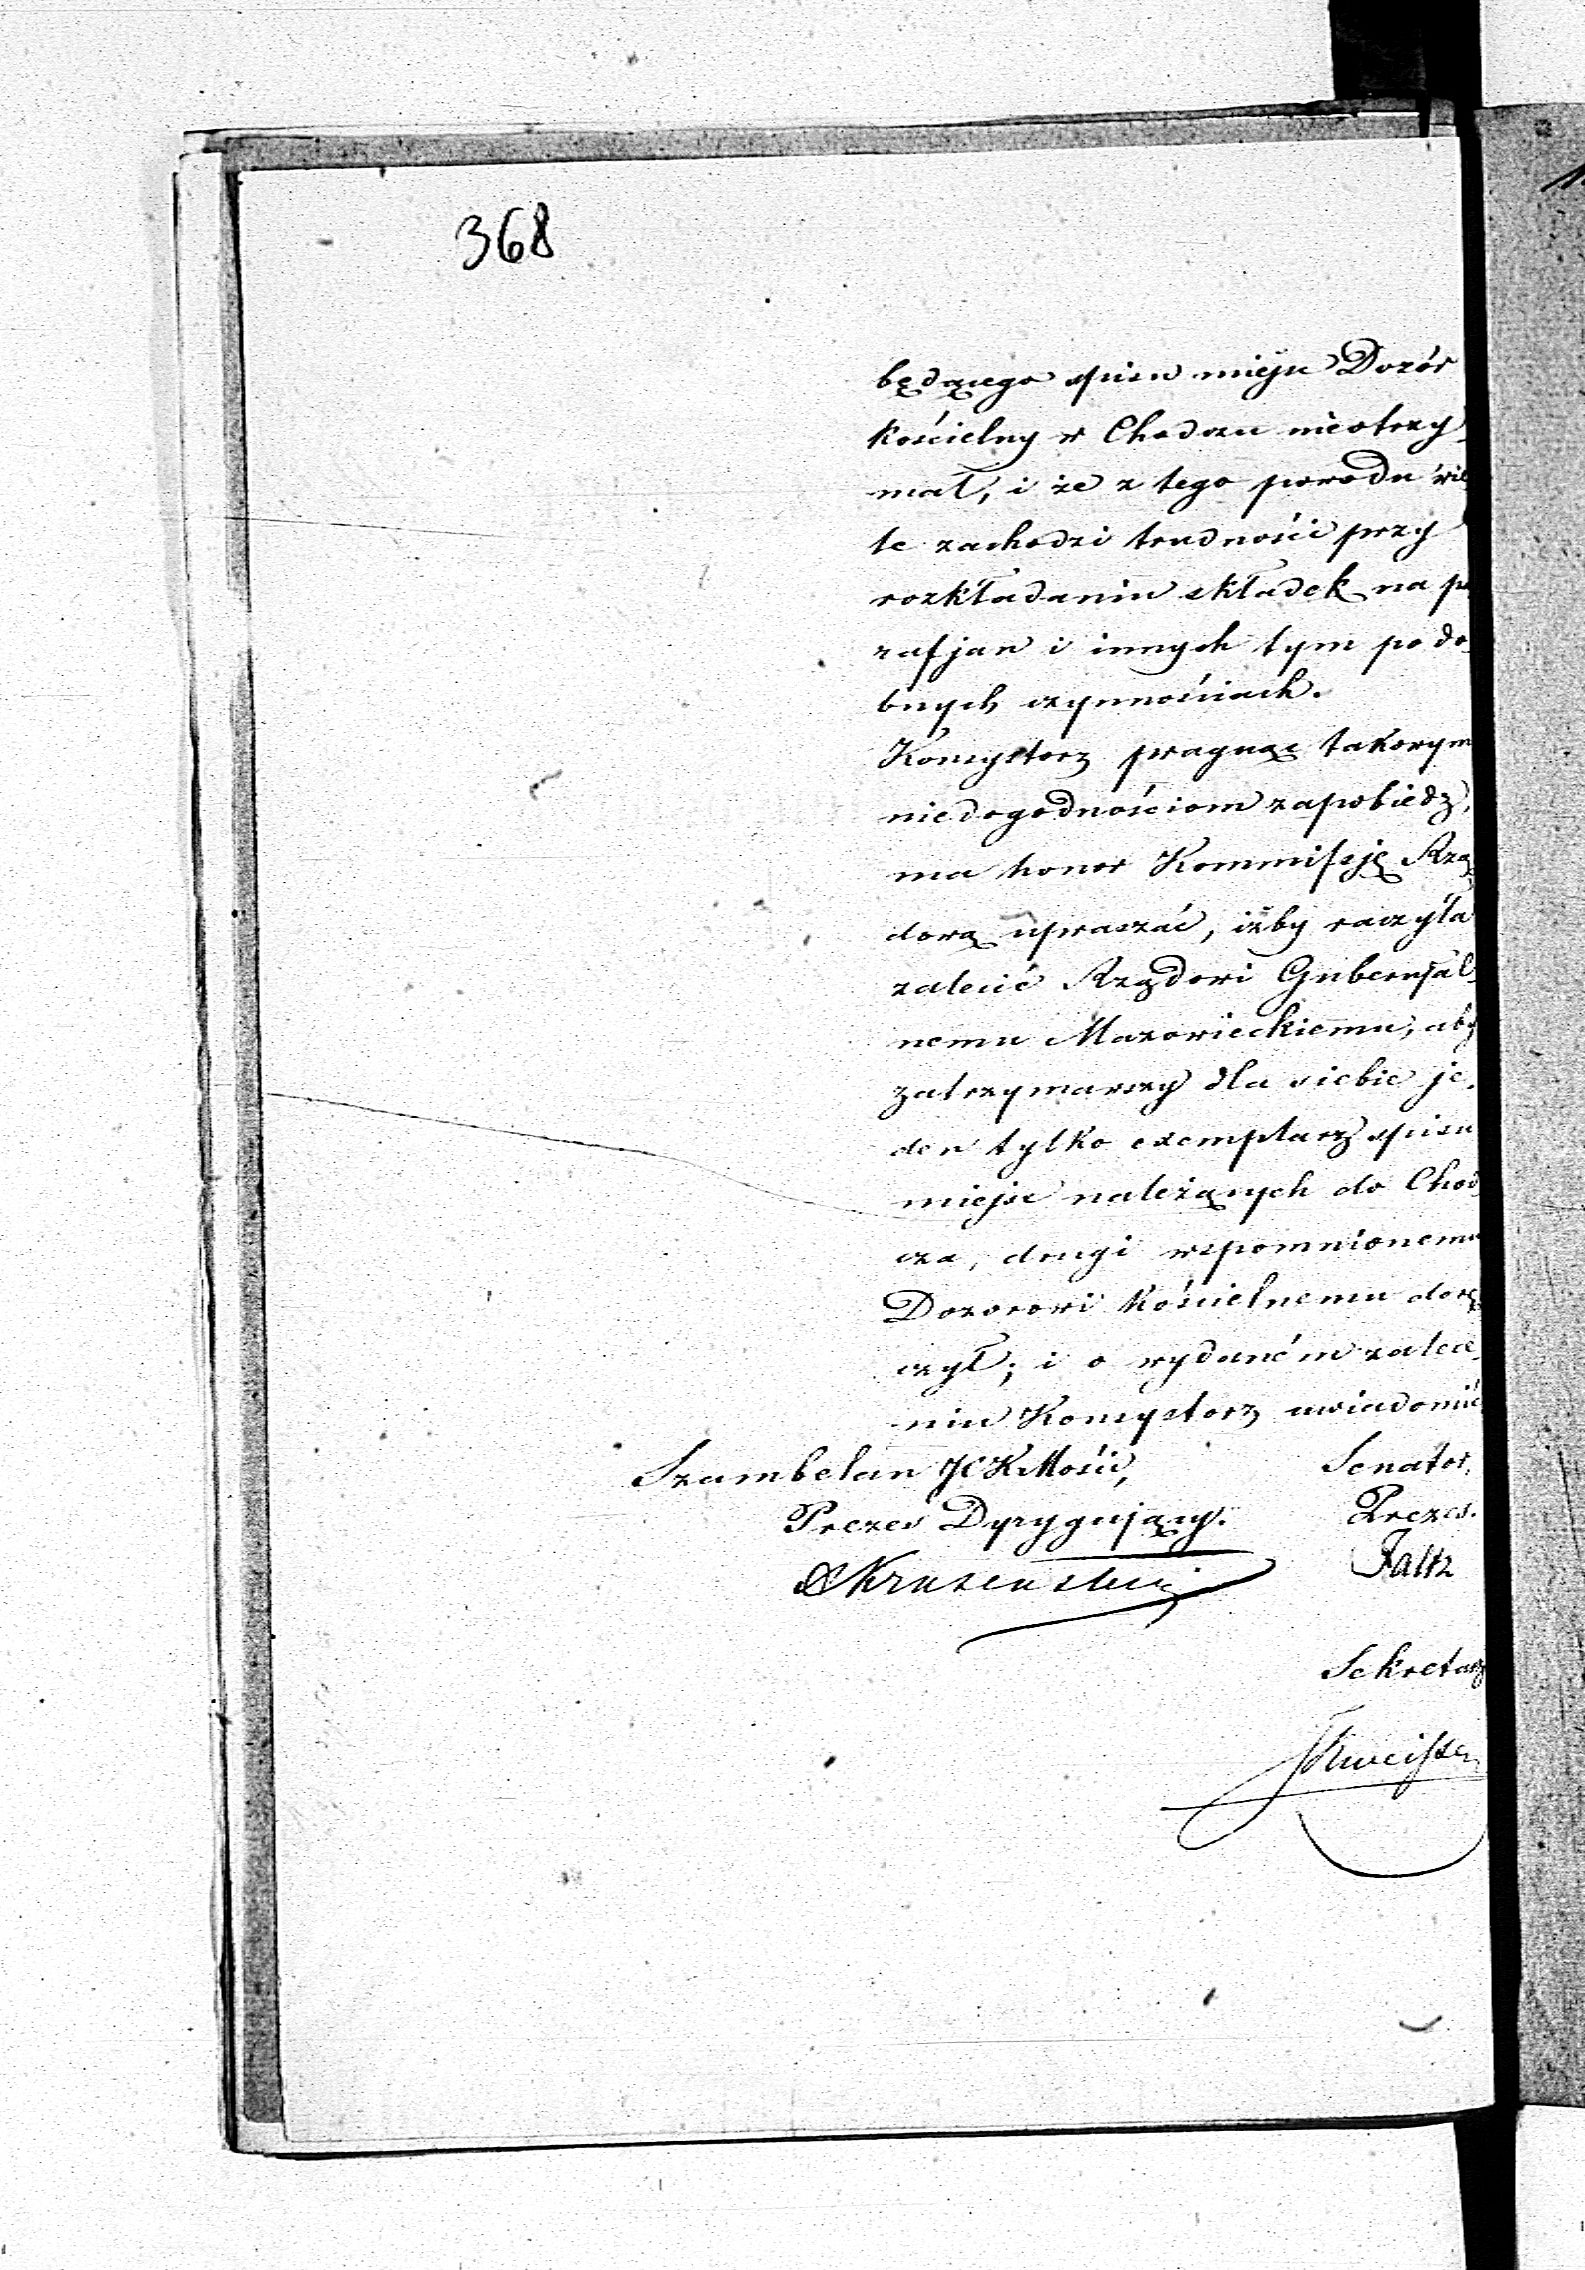 368
będącego spisu miejsc Dozór
kościelny w Chodczu nieotrzy-
mał, i że z tego powodu wie-
le zachodzi trudności przy
rozkładaniu składek na pa
rafjan i innych tym podo-
bnych czynnościach.
Konsystorz pragnąc takowym
niedogodnościom zapobiedz,
ma honor Kommissję Rzą
dową upraszać, iżby raczyła
zalecić Rządowi Gubernjal-
nemu Mazowieckiemu, aby
zatrzymawszy dla siebie je-
den tylko exemplarz spisu
miejsc należących do Chod-
cza, drugi wspomnionemu
Dozorowi kościelnemu dorę
czył; i o wydaném zalece-
niu Konsystorz uwiadomić.
Szambelan JCKMości, Senator,
Prezes Dyrygujący. Prezes.
Krusenstern Faltz
Sekretarz